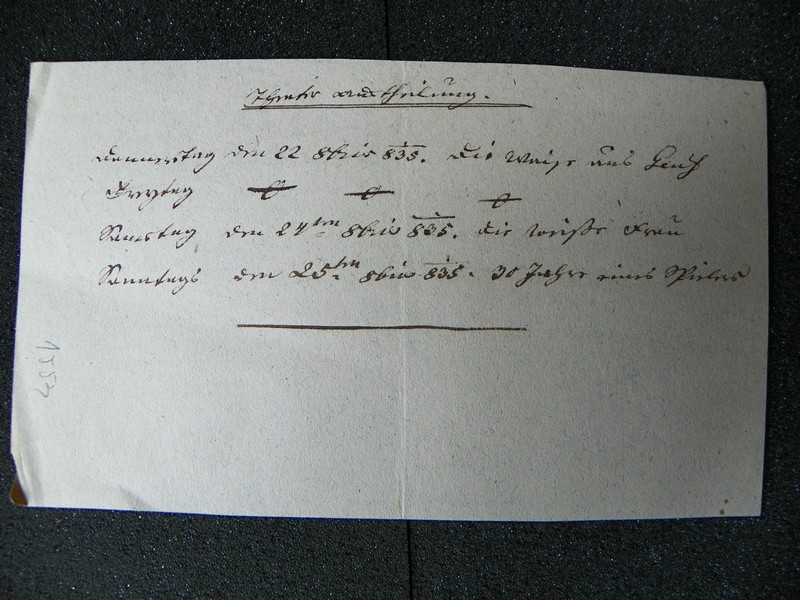 Theater Austheilung.
Donnerstag den 22 8bris 835. Die Waise aus Genf
Freytag
Samstag den 24ten 8bris 835. Die weiße Frau
Sonntags den 25ten 8bris 835. 30 Jahre eines Spielers